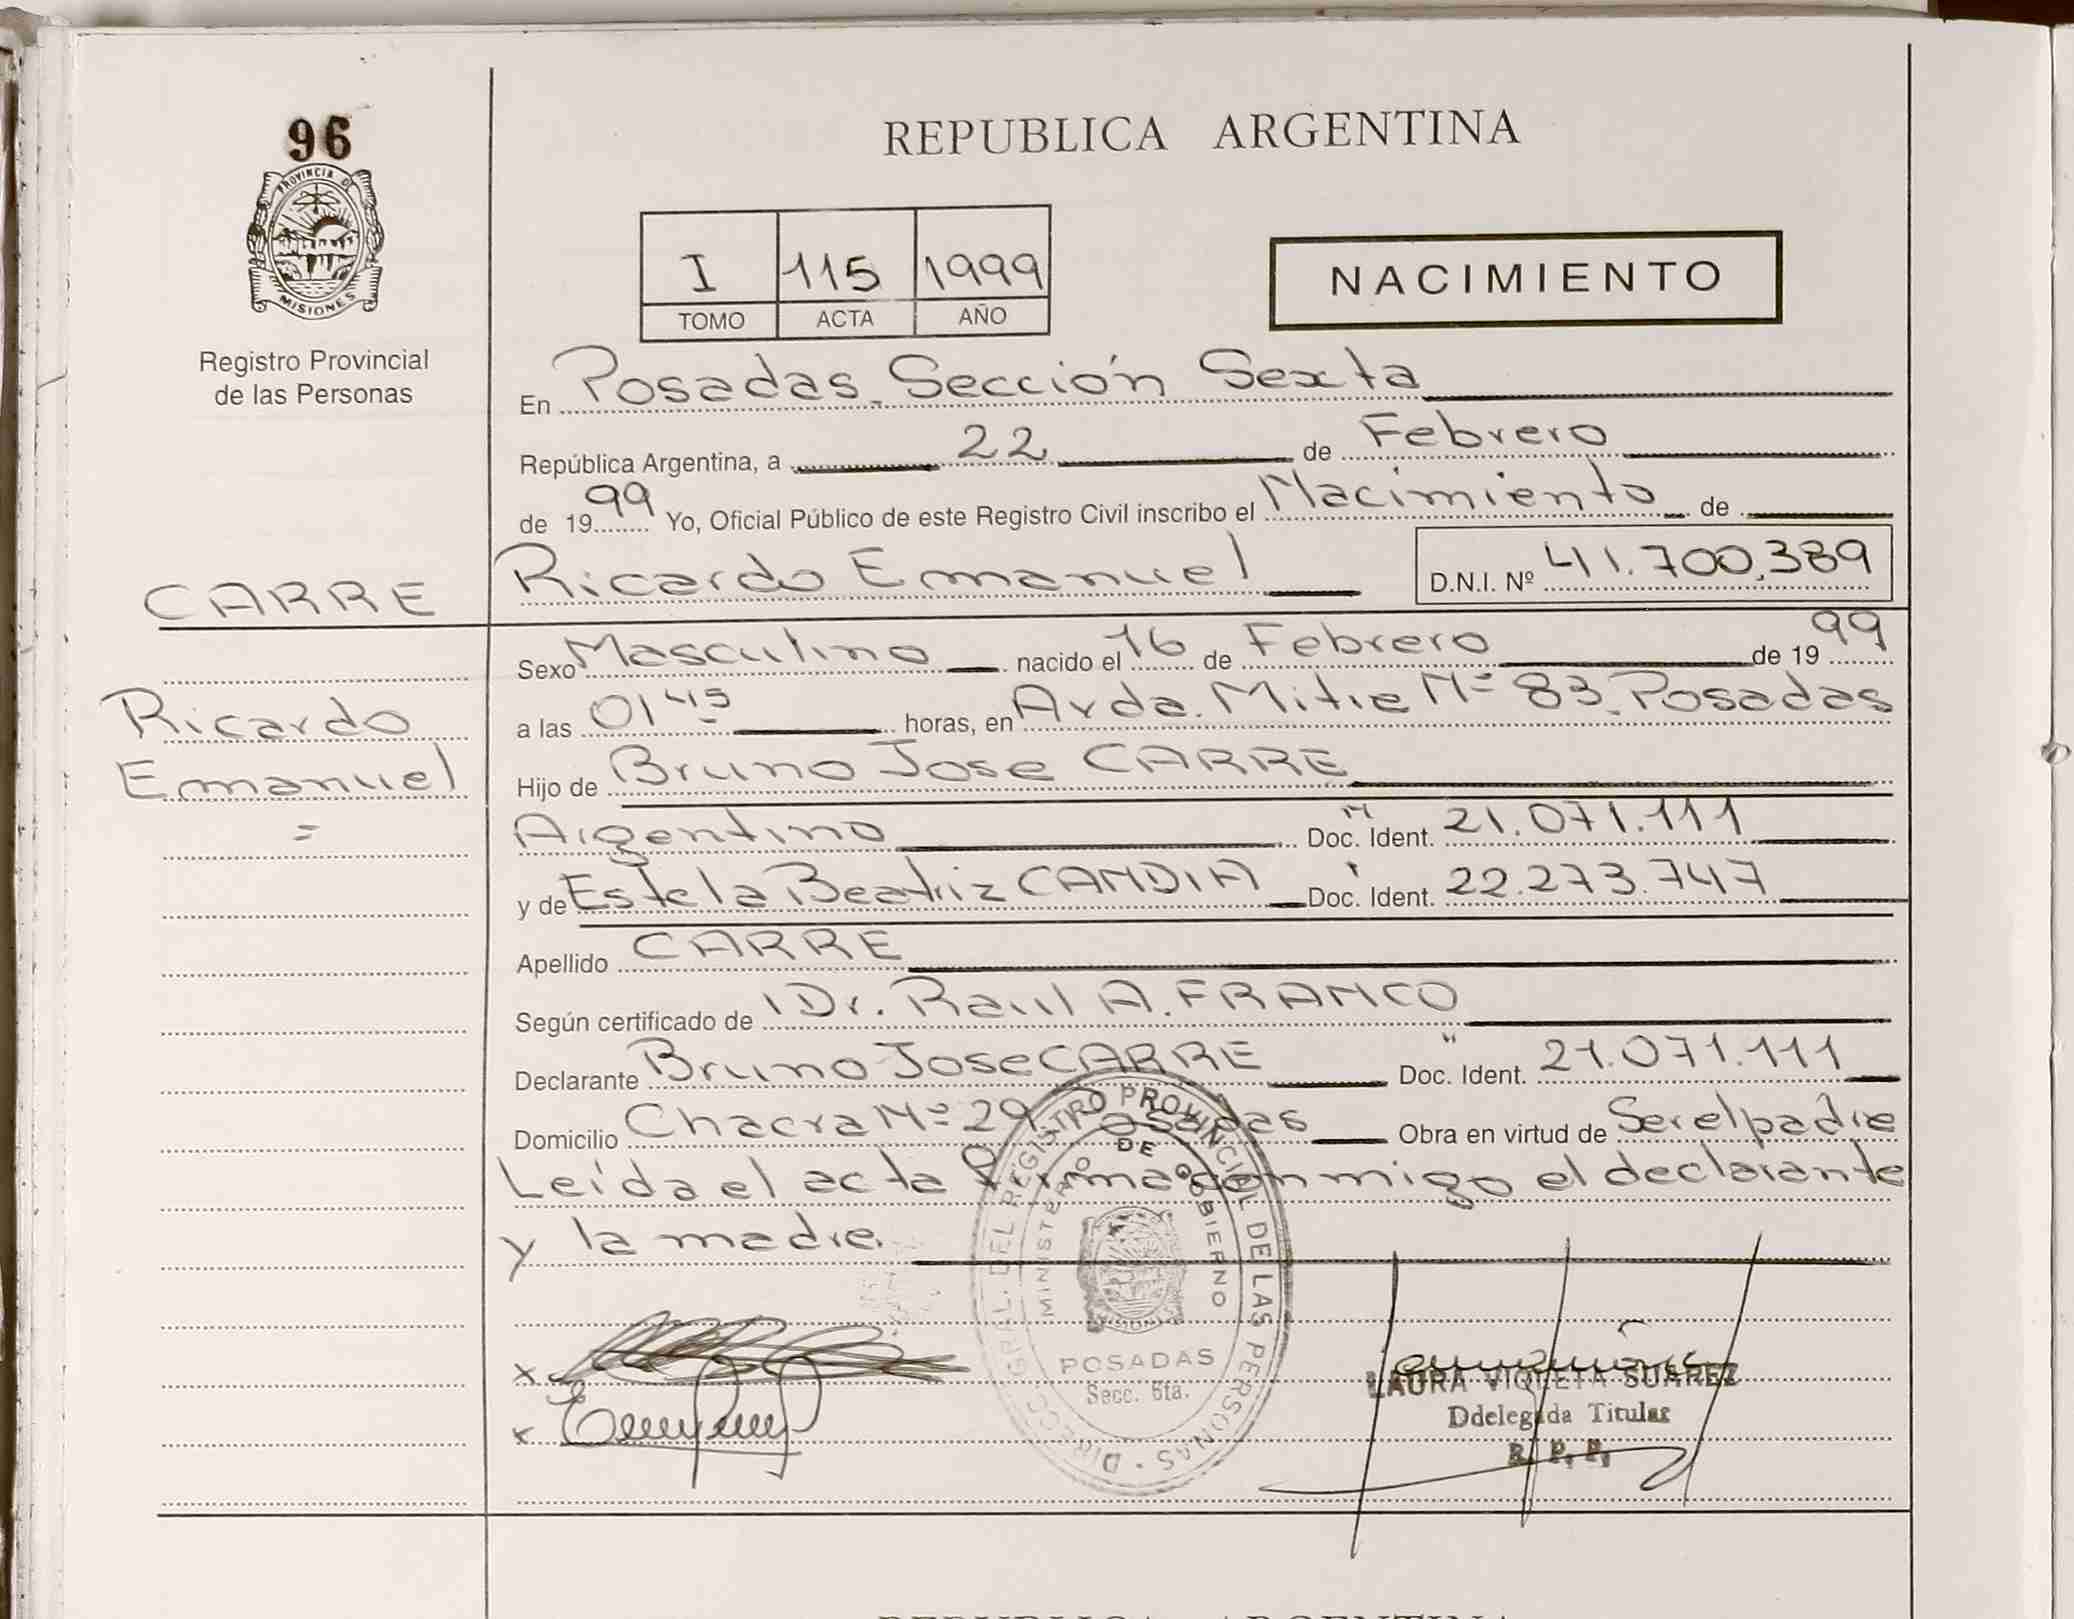 96
PROVINCIA D
MISIONES
Registro Provincial
de las Personas
CARRE
Ricardo
Emanuel
=
REPUBLICA ARGENTINA
I 115 1999
TOMO ACTA AÑO
NACIMIENTO
En Posadas. Sección Sexta
República Argentina, a 22 de Febrero
de 1999 Yo, Oficial Público de este Registro Civil inscribo el Nacimiento de
Ricardo Emanuel D.N.I. Nº 41.700.389
Sexo Masculino nacido el 16 de Febrero de 1999
a las 01 45 horas, en Avda. Mitre Nº 83. Posadas
Hijo de Bruno Jose CARRE
Argentino Doc. Ident. 21.071.111
y de Estela Beatriz CANDIA Doc. Ident. 22.273.747
Apellido CARRE
Según certificado de Dr. Raul A. FRANCO
Declarante Bruno Jose CARRE Doc. Ident. " 21.071.111
Domicilio Chacra Nº 29. Posadas Obra en virtud de Ser el padre
Leída el acta firma conmigo el declarante
y la madre.
DIRECC. GRAL. DEL REGISTRO PROVINCIAL DE LAS PERSONAS
MINISTERIO DE GOBIERNO
MISIONES
POSADAS
Secc. 6ta.
x
x
LAURA VIOLETA SUAREZ
Ddelegada Titular
R. P. P.
REPUBLICA ARGENTINA